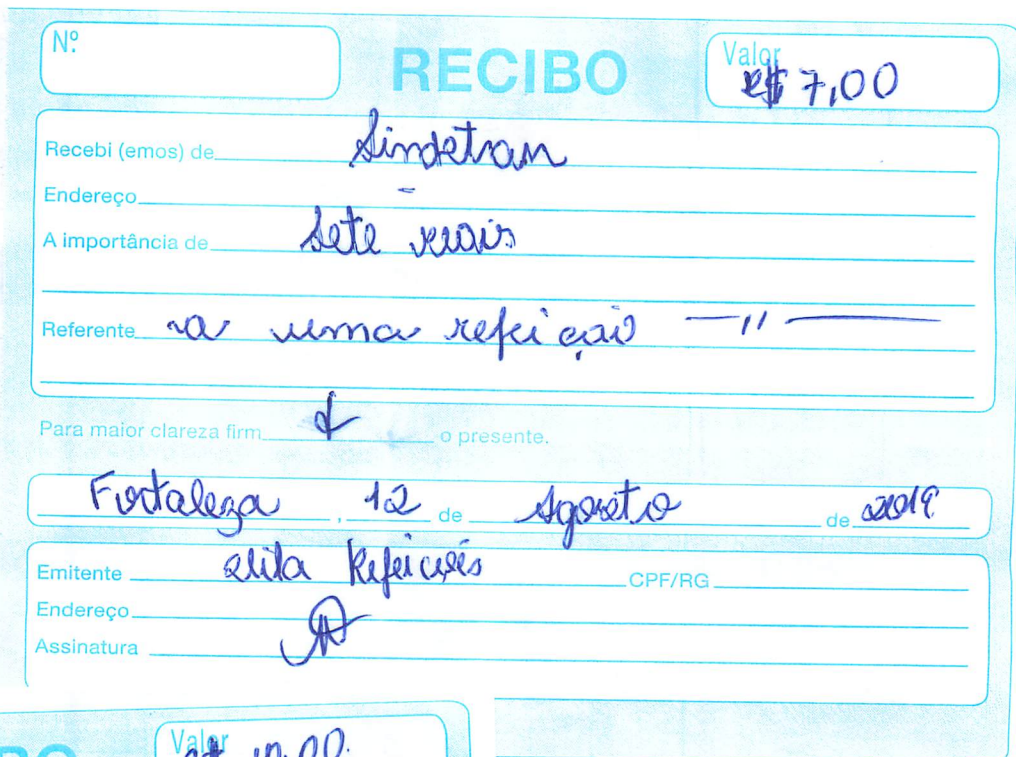 Nº
RECIBO
Valor R$ 7,00
Recebi (emos) de Sindetran
Endereço -
A importância de Sete reais
Referente a uma refeição —//—
Para maior clareza firm o presente.
Fortaleza, 12 de Agosto de 2019
Emitente Refeições CPF/RG
Endereço
Assinatura
Valor